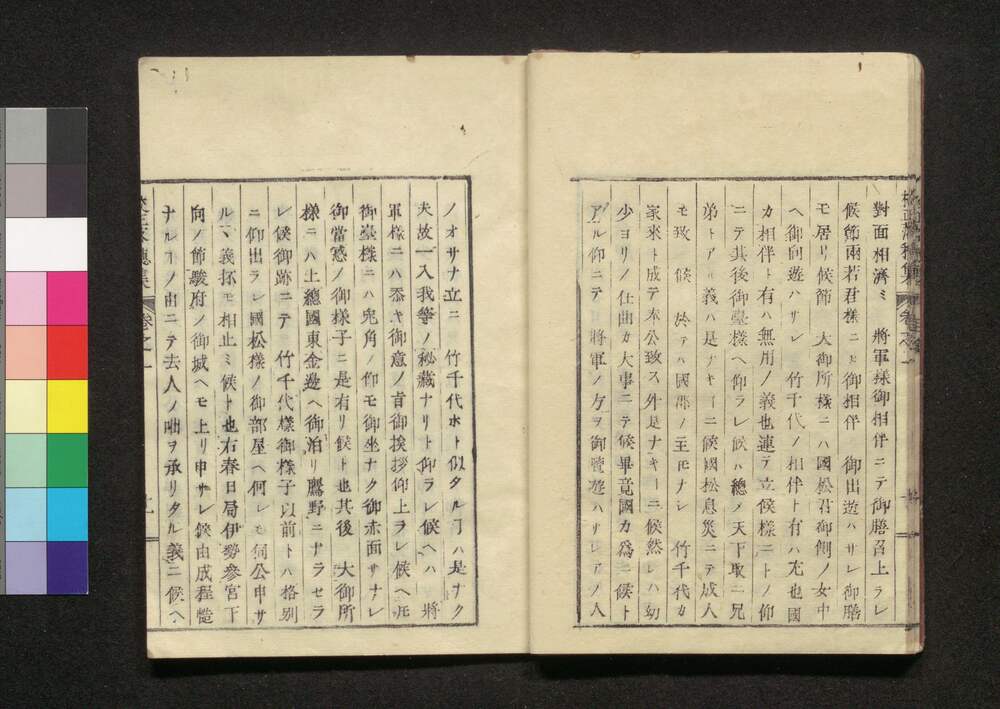 對面相濟ミ 將軍樣御相伴ニテ御膳召上ラレ
候節兩若君樣ニモ御相伴 御出遊ハサレ御膳
モ居リ候節 大御所樣ニハ國松君御側ノ女中
ヘ御向遊ハサレ 竹千代ノ相伴ト有ハ尤也國
カ相伴ト有ハ無用ノ義也連テ立候樣ニトノ仰
ニテ其後御臺樣ヘ仰ラレ候ハ總ノ天下取ニ兄
弟トアル義ハ是ナキ一ニ候國松息災ニテ成人
モ致 候 於テハ國郡ノ主モナシ 竹千代カ
家來ト成テ奉公致ス外是ナキ一ニ候然レハ幼
少ヨリノ仕曲カ大事ニテ候畢竟國カ爲ニ候ト
アル仰ニテ 將軍ノ方ヲ御覽遊ハサレアノ人
ノオサナ立ニ 竹千代ホト似タルヿハ是ナク
夫故一入我等ノ秘藏ナリト仰ラレ候ヘハ 將
軍樣ニハ忝キ御意ノ旨御挨拶仰上ラレ候ヘ𪜈
御臺樣ニハ兎角ノ仰モ御坐ナク御赤面サナレ
御當惑ノ御樣子ニ是有リ候ト也其後 大御所
樣ニハ上總國東金邊ヘ御泊リ鷹野ニナラセラ
レ候御跡ニテ 竹千代樣御樣子以前トハ格別
ニ仰出ラレ國松樣ノ御部屋ヘ何レモ伺公申サ
ルヽ義抔モ相止ミ候ト也右春日局伊勢參宮下
向ノ節駿府ノ御城ヘモ上リ申サレ候由成程慥
ナルヿノ由ニテ去人ノ咄ヲ承リタル義ニ候ヘ